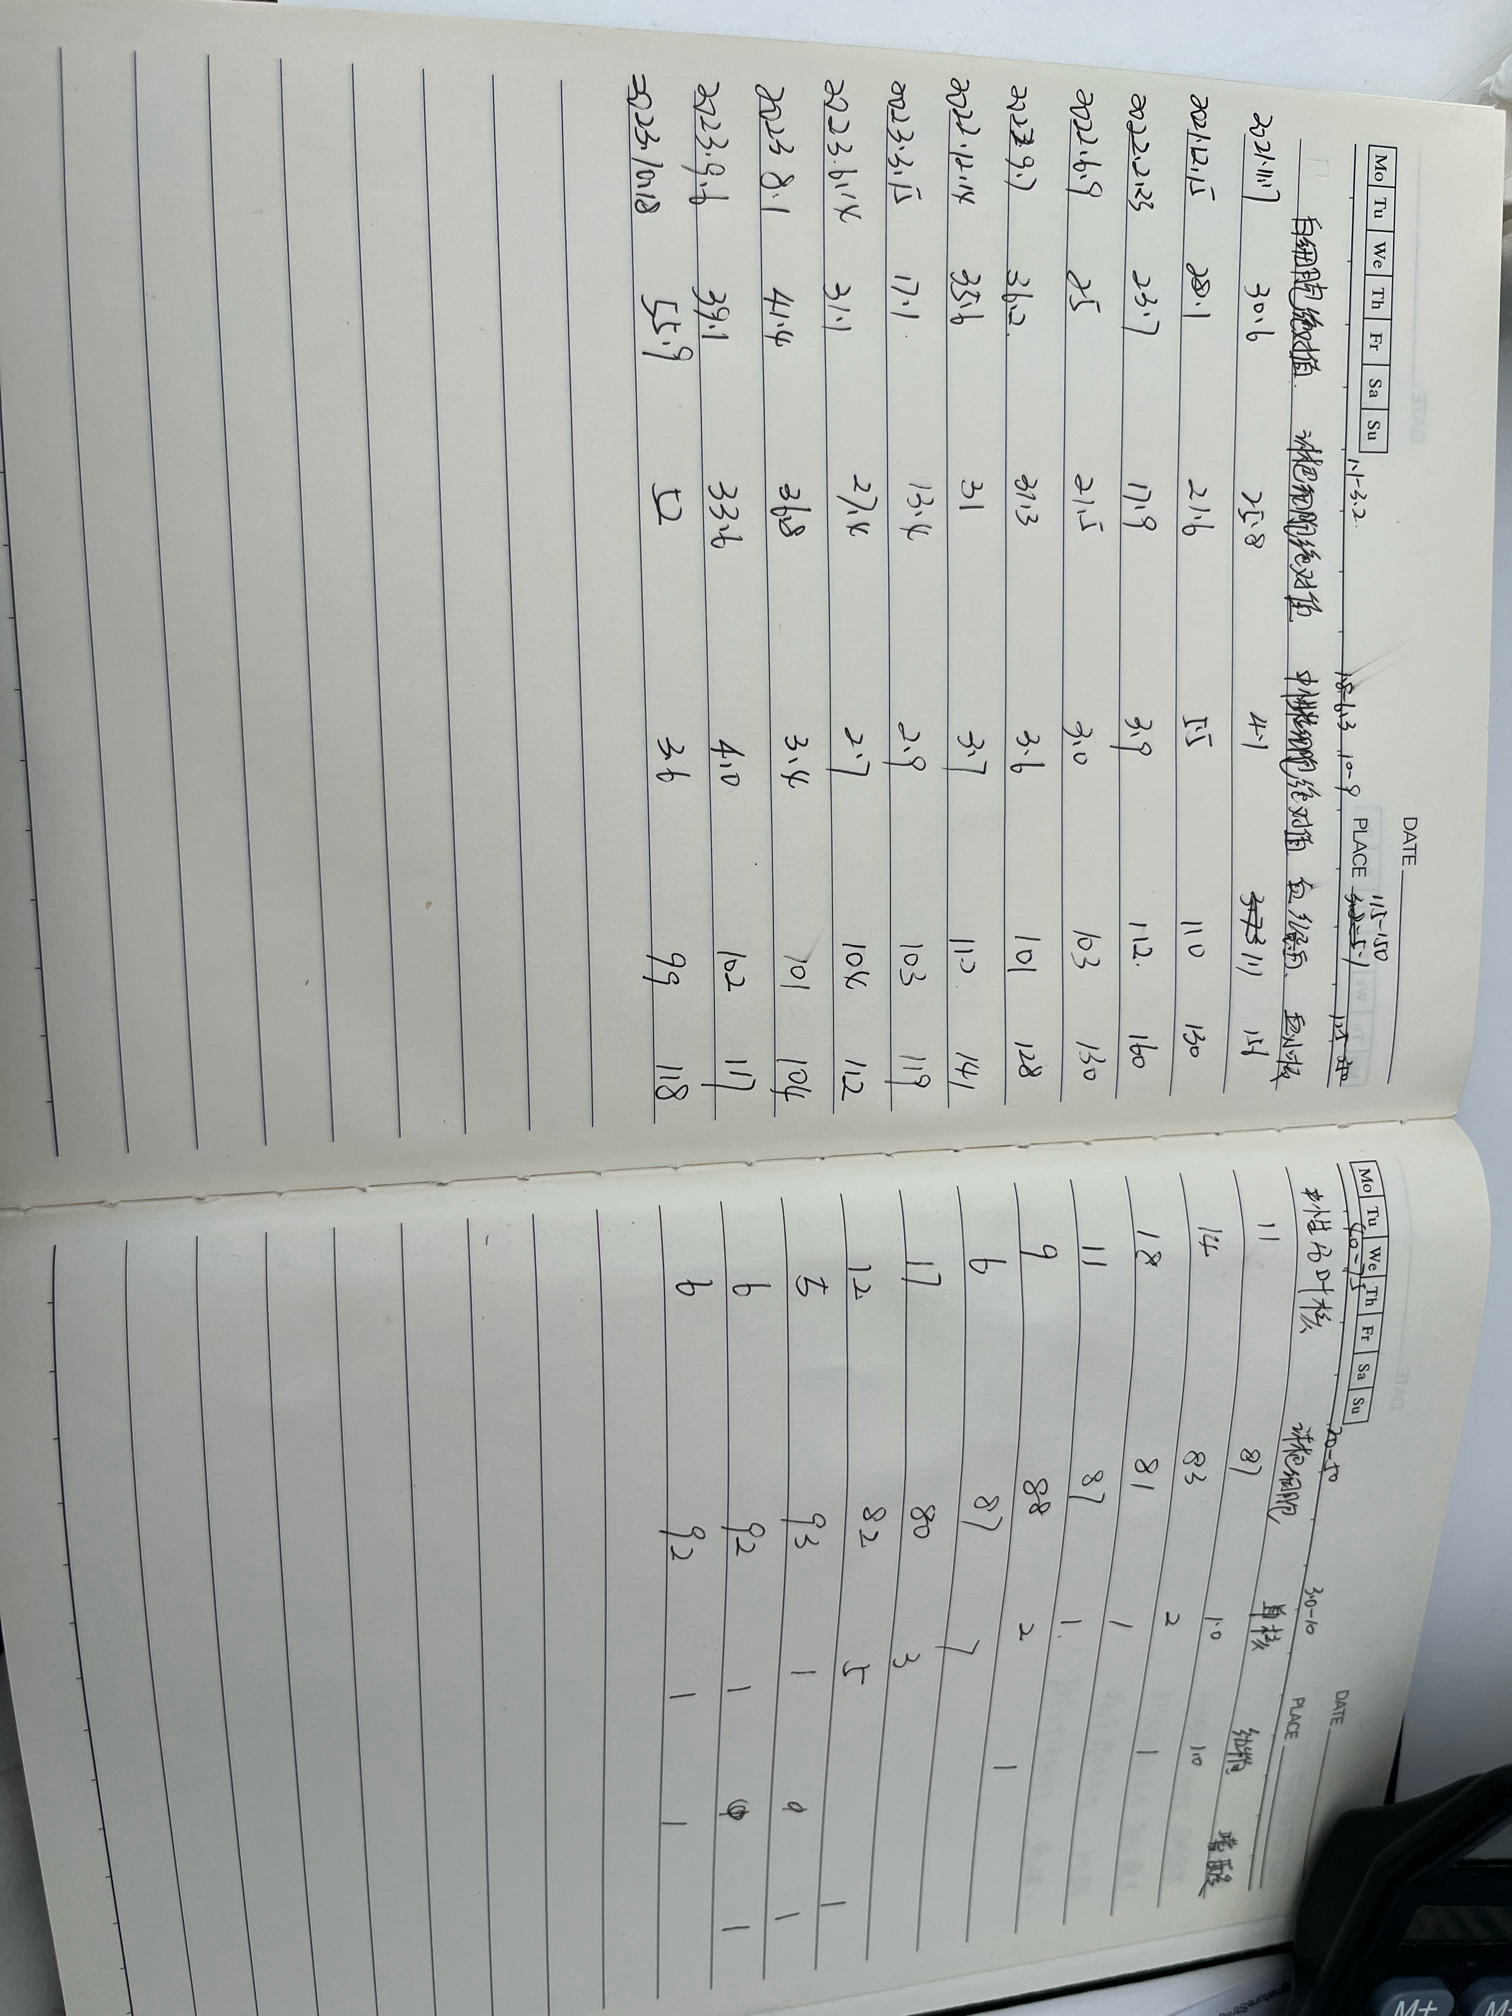 Mo Tu We Th Fr Sa Su
DATE
PLACE
1.1-3.2
1.8-6.3
115-150
白细胞绝对值 淋巴细胞绝对值 中性粒细胞绝对值 血红蛋白 血小板
2021.11.7 30.6 25.8 4.1 111 151
2021.12.15 28.1 21.6 5.5 110 130
2022.2.23 23.7 17.9 3.9 112. 160
2022.6.9 25 21.5 3.0 103 130
2022.9.7 36.2. 31.3 3.6 101 128
2022.12.14 35.6 31 3.7 110 141
2023.3.15 17.1 13.4 2.9 103 119
2023.6.14 31.1 27.4 2.7 104 112
2023 8.1 41.4 36.8 3.4 101 104
2023.9.6 39.1 33.6 4.0 102 117
2023.10.18 55.9 52 3.6 99 118
Mo Tu We Th Fr Sa Su
DATE
PLACE
40-75
20-50
3.0-10
中性分叶核 淋巴细胞 单核 幼稚 嗜酸
11 87 1.0 1.0
14 83 2
18 81 1 1
11 87 1.
9 88 2 1
6 87 7
17 80 3
12 82 5 1
5 93 1 0 1
6 92 1 0 1
6 92 1 1
M+